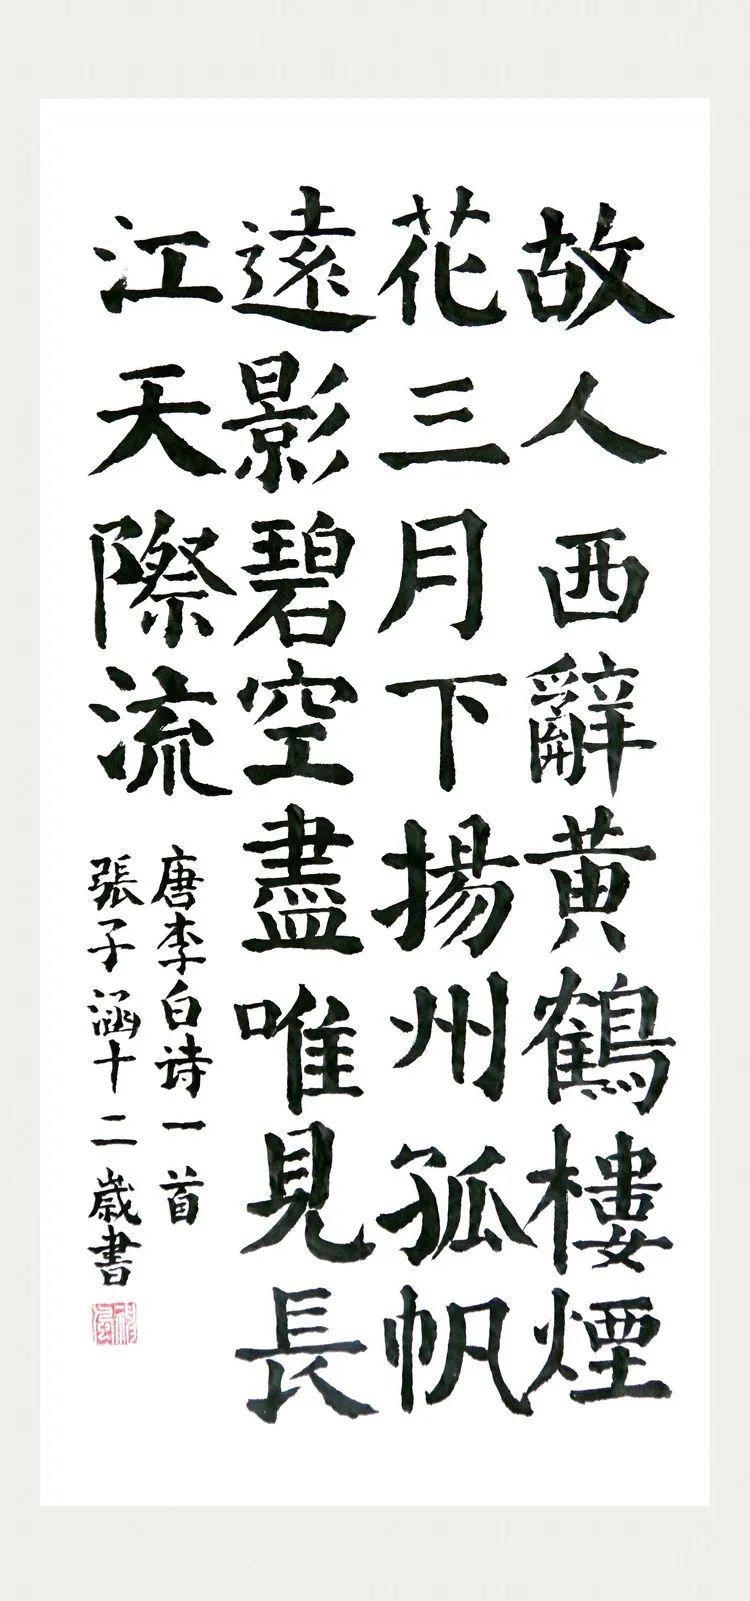 故人西辭黃鶴樓煙
花三月下揚州孤帆
遠影碧空盡唯見長
江天際流
唐李白诗一首
張子涵十二歲書